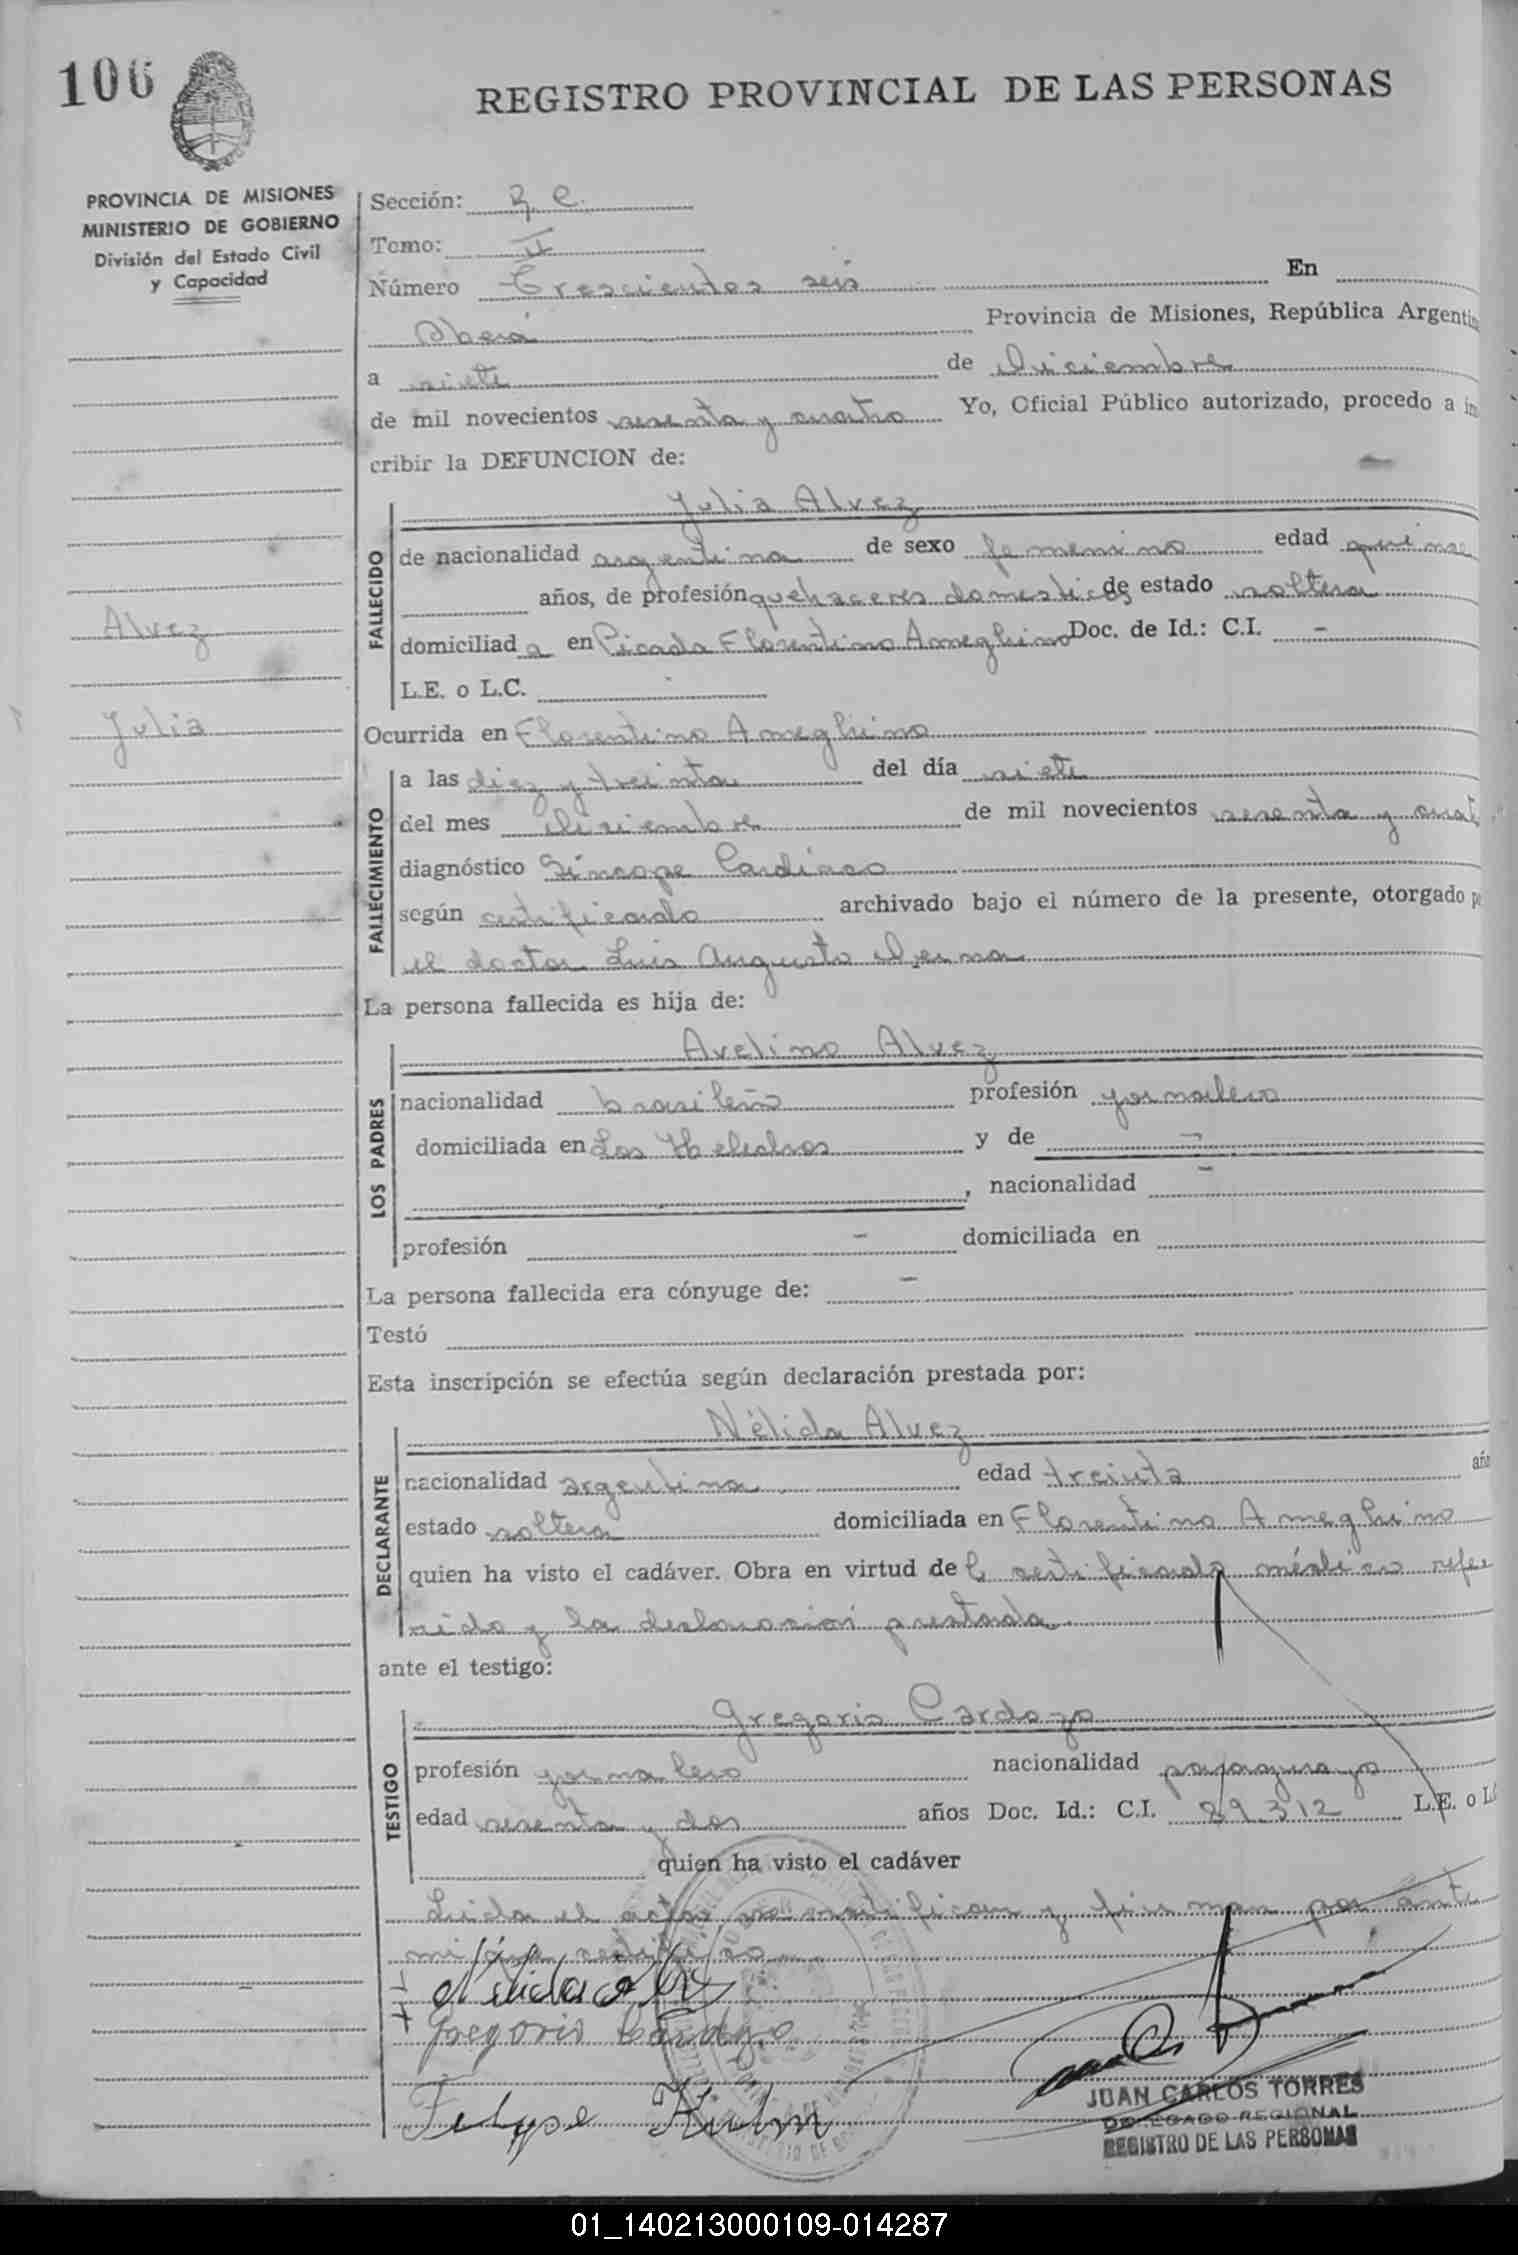 106
REGISTRO PROVINCIAL DE LAS PERSONAS
PROVINCIA DE MISIONES
MINISTERIO DE GOBIERNO
División del Estado Civil
y Capacidad
Alvez
Julia
Sección: R. C.
Tomo: II
Número Trescientos seis En
Oberá Provincia de Misiones, República Argentin
a siete de Diciembre
de mil novecientos sesenta y cuatro Yo, Oficial Público autorizado, procedo a in
cribir la DEFUNCION de:
FALLECIDO
Julia Alvez
de nacionalidad argentina de sexo femenino edad quince
años, de profesión quehaceres domesticos de estado soltera
domiciliad a en Picada Florentino Ameghino Doc. de Id.: C.I. -
L.E. o L.C.
Ocurrida en Florentino Ameghino
FALLECIMIENTO
a las diez y treinta del día siete
del mes diciembre de mil novecientos sesenta y cuat
diagnóstico Síncope Cardíaco
según certificado archivado bajo el número de la presente, otorgado p
el doctor Luis Augusto
La persona fallecida es hija de:
LOS PADRES
Avelino Alvez
nacionalidad brasileño profesión jornalero
domiciliada en Los Helechos y de -
, nacionalidad -
profesión - domiciliada en
La persona fallecida era cónyuge de: -
Testó
Esta inscripción se efectúa según declaración prestada por:
DECLARANTE
Nélida Alvez
nacionalidad argentina edad treinta añ
estado soltera domiciliada en Florentino Ameghino
quien ha visto el cadáver. Obra en virtud de l certificado médico refe
rido y la declaracion prestada
ante el testigo:
TESTIGO
Gregorio Cardozo
profesión jornalero nacionalidad paraguayo
edad sesenta y dos años Doc. Id.: C.I. 89.312 L.E. o L.C
quien ha visto el cadáver
Leida el acta, la ratifican y firman por ante
mi
Nélida Alvez
Gregorio Cardozo
Felipe Kuhn
JUAN CARLOS TORRES
DELEGADO REGIONAL
REGISTRO DE LAS PERSONAS
01_140213000109-014287